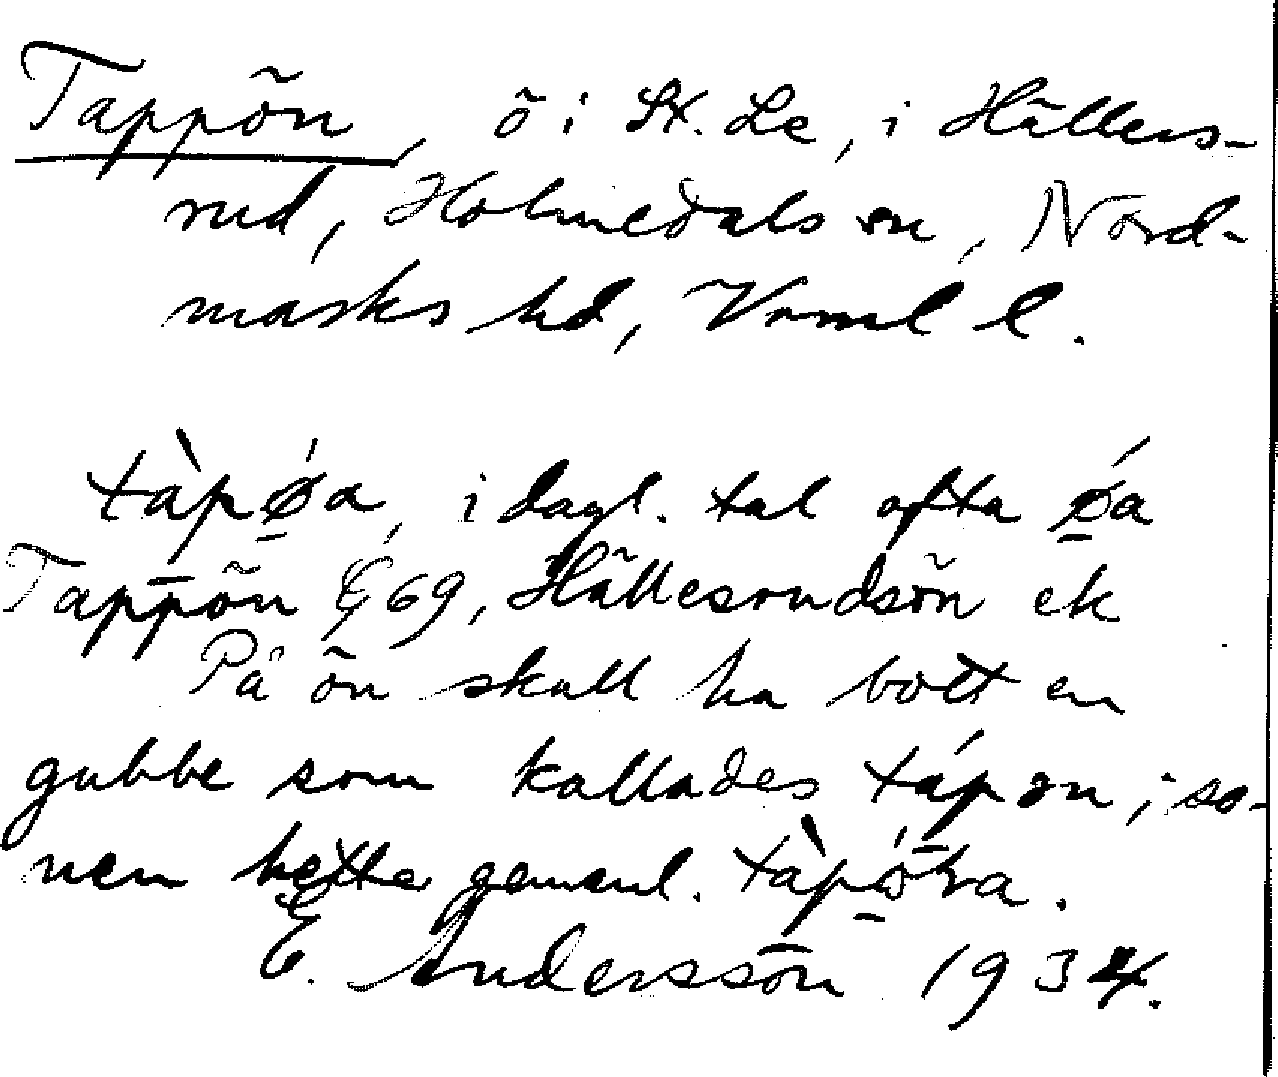 Tappõn, õ i St. Le, i Hällers-
rud, Holmedals sn, Nord-
marks hd, Vrml l.
tàpǿa, i dagl. tal ofta ǿa
Tappõn G 69, Hällesrudsõn ek
På õn skall ha bott en
gubbe som kallades tápən; so-
nen hette
E. Andersson 1934.